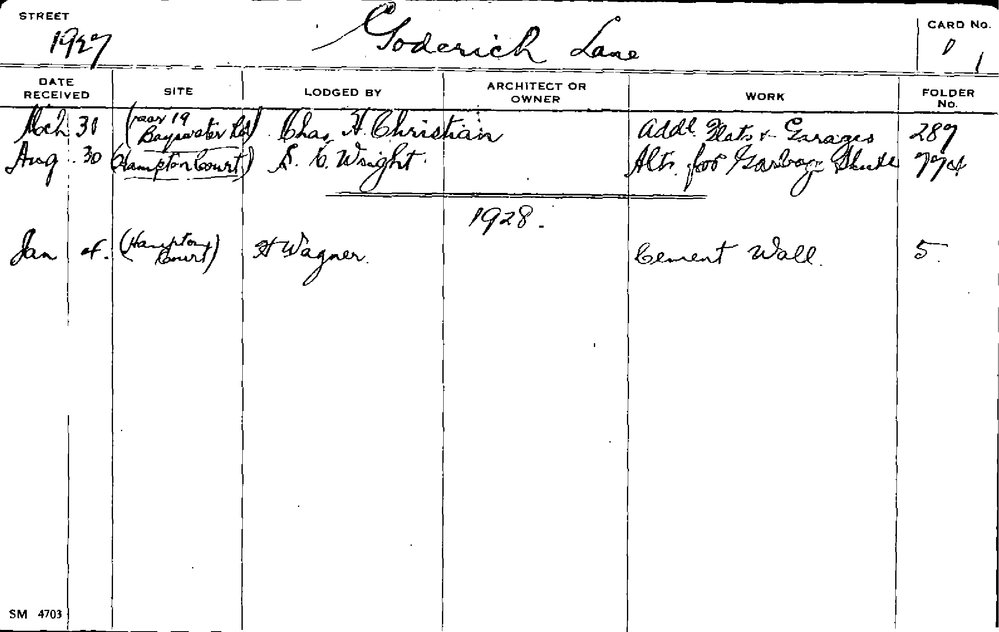 STREET
1927
Goderich Lane
CARD No.
1
DATE RECEIVED
SITE
LODGED BY
ARCHITECT OR OWNER
WORK
FOLDER No.
Mch 31 (rear 19 Bayswater Rd) Chas H. Christian Addl. Flats & Garages 287
Aug 30 (Hampton Court) S. C. Wright Alts. for Garbage Shute 774
1928.
Jan 4. (Hampton Court) H Wagner. Cement Wall. 5
SM 4703